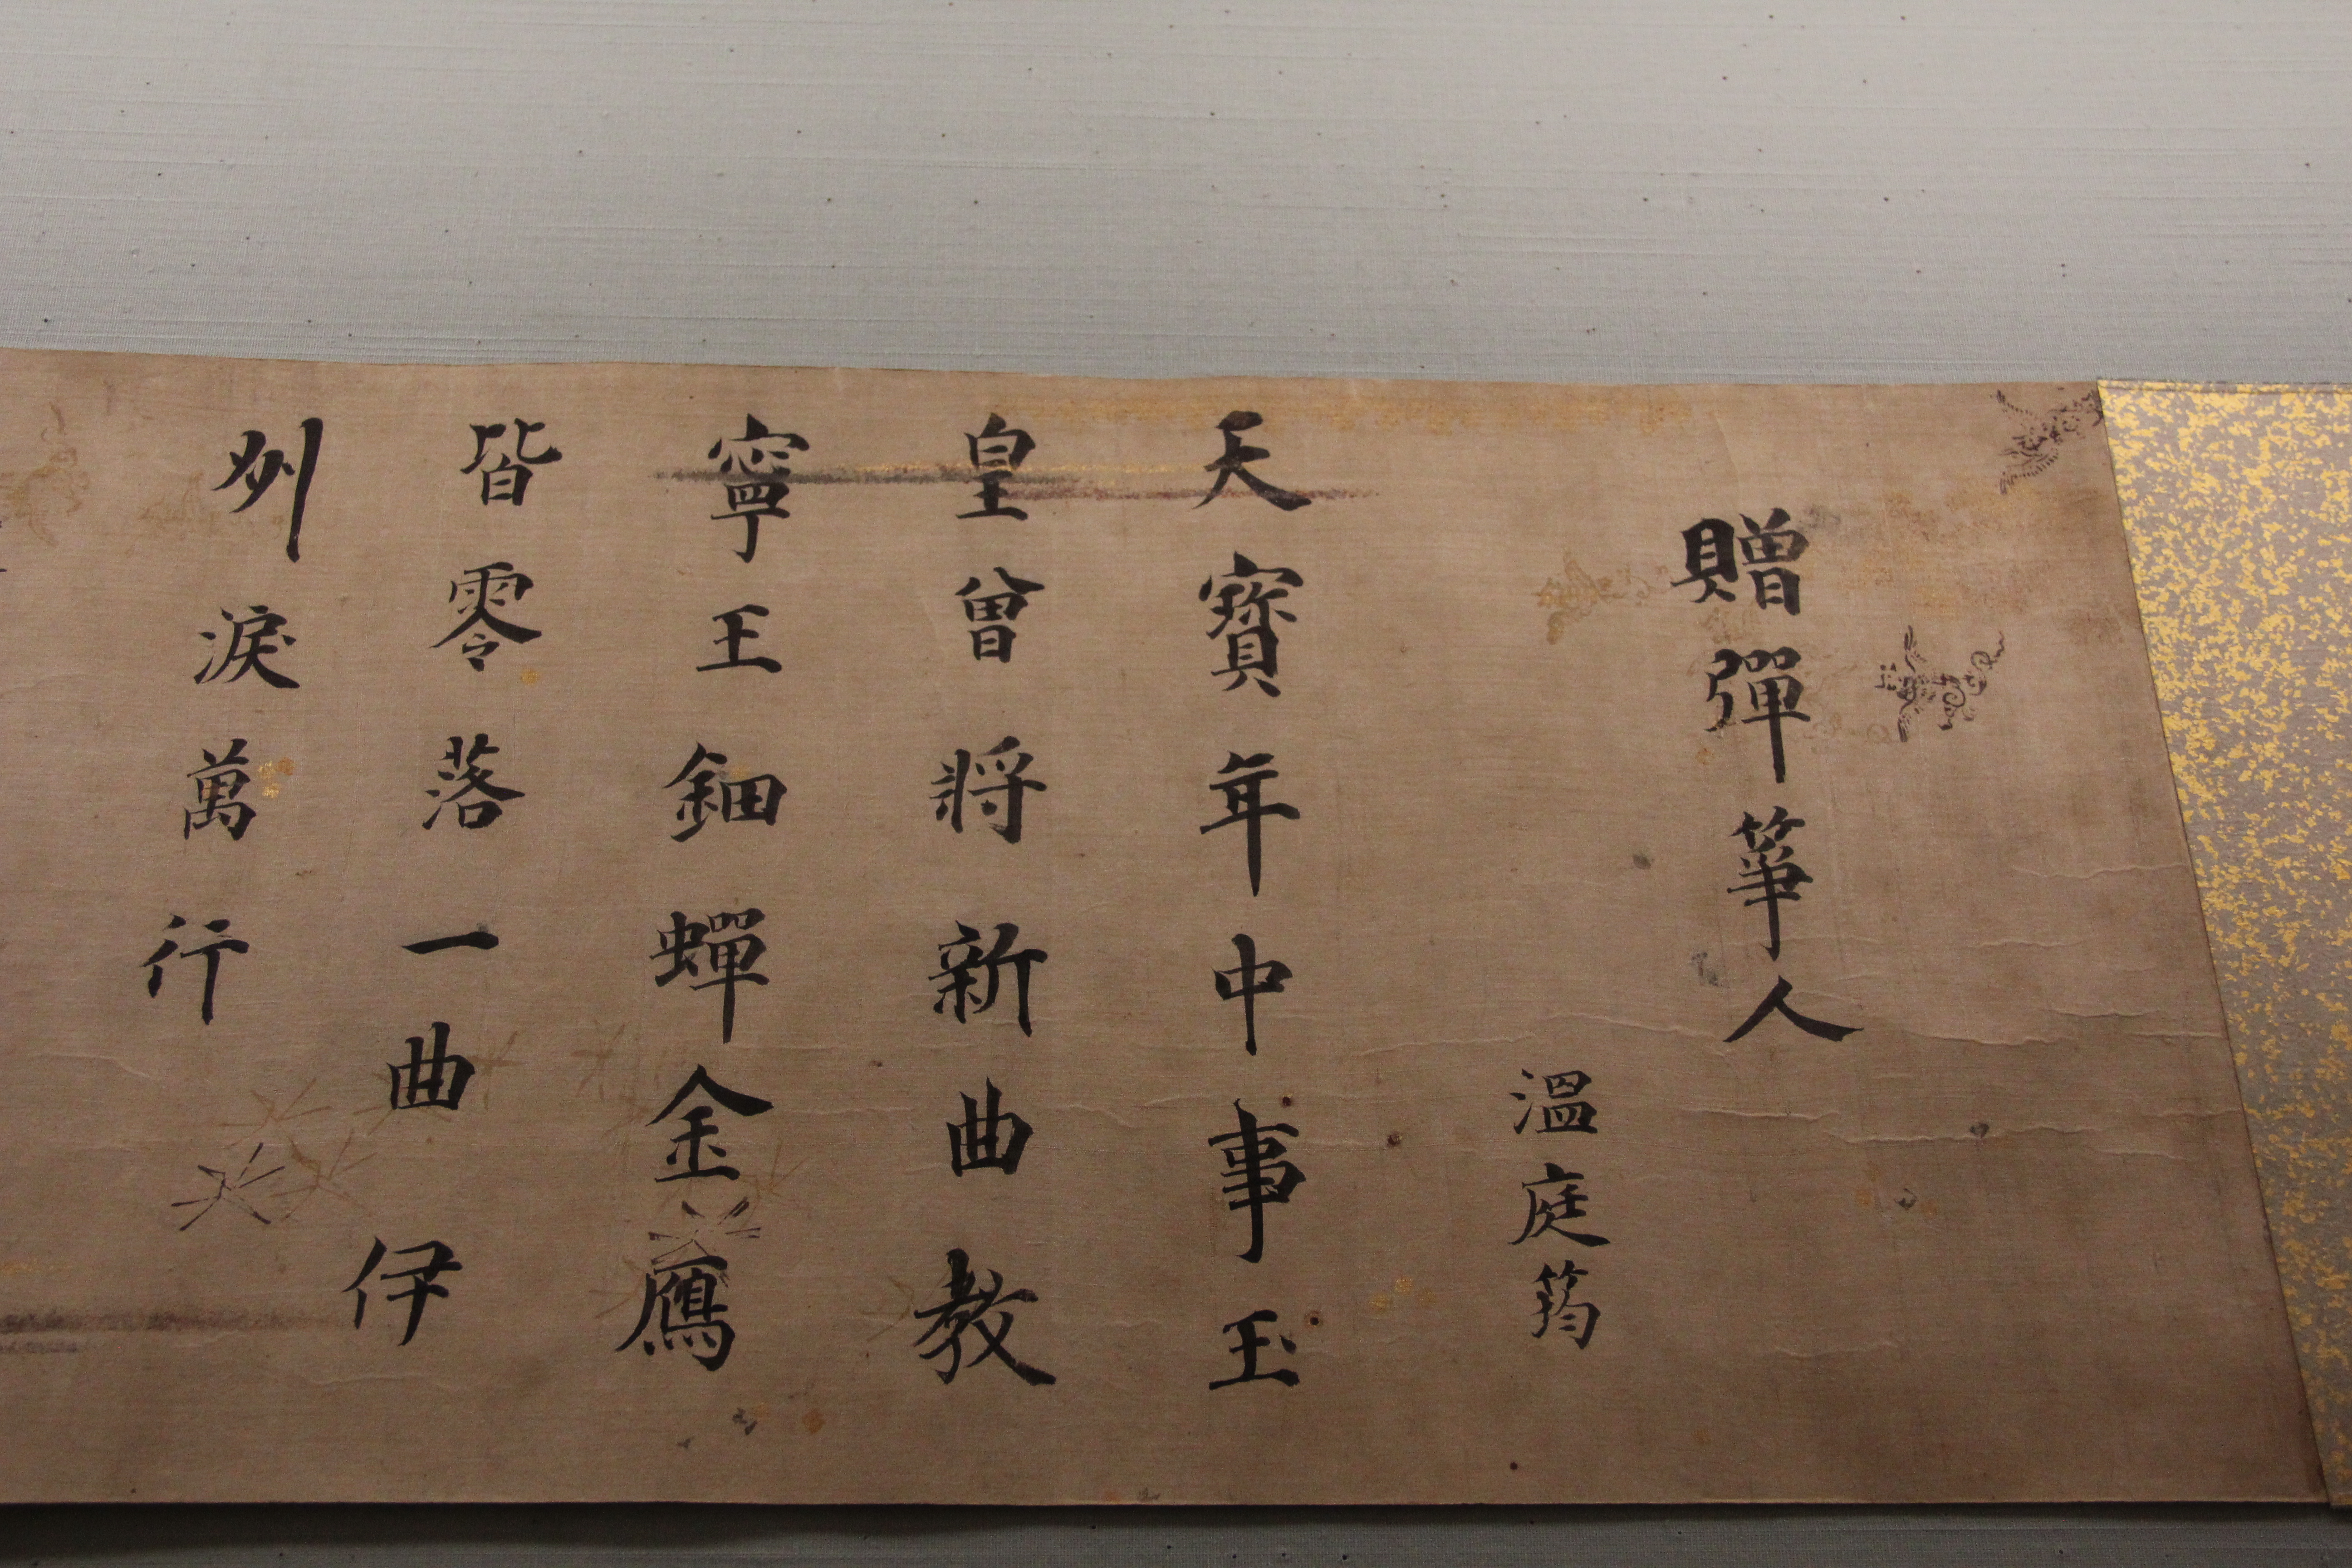 贈彈箏人
溫庭筠
天寶年中事玉
皇曾將新曲教
寧王鈿蟬金鴈
皆零落一曲伊
州淚萬行